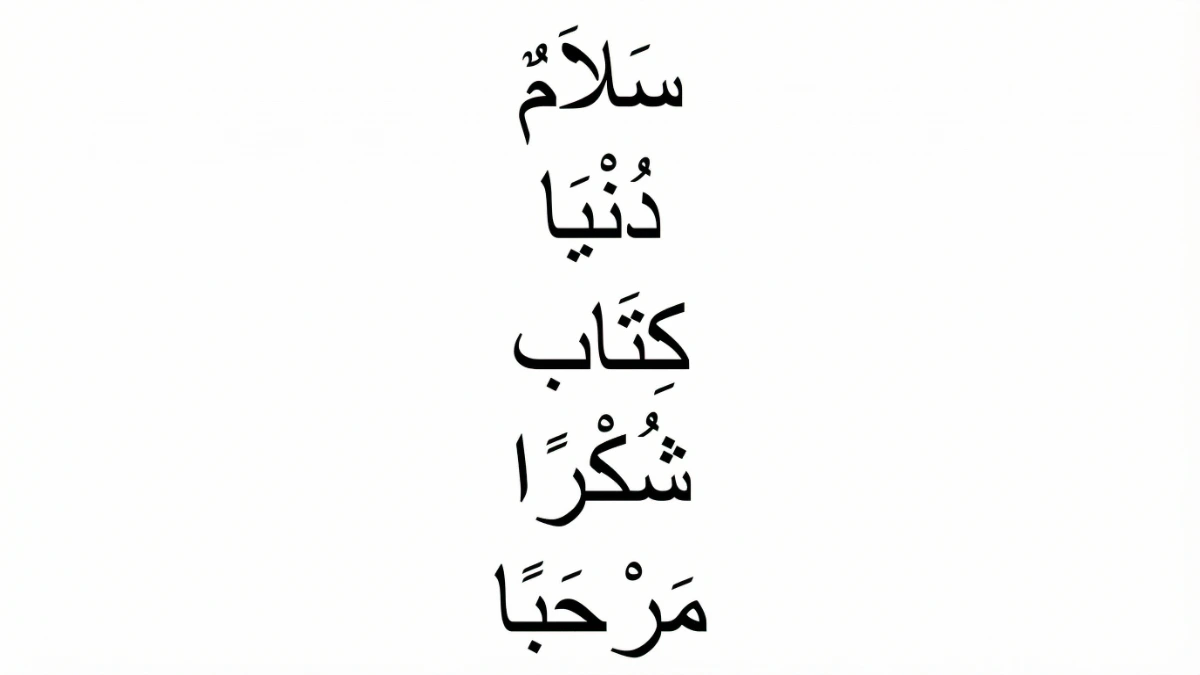 سَلَاَمٌ
دُنْيَا
كِتَاب
شُكْرًا
مَرْحَبًا